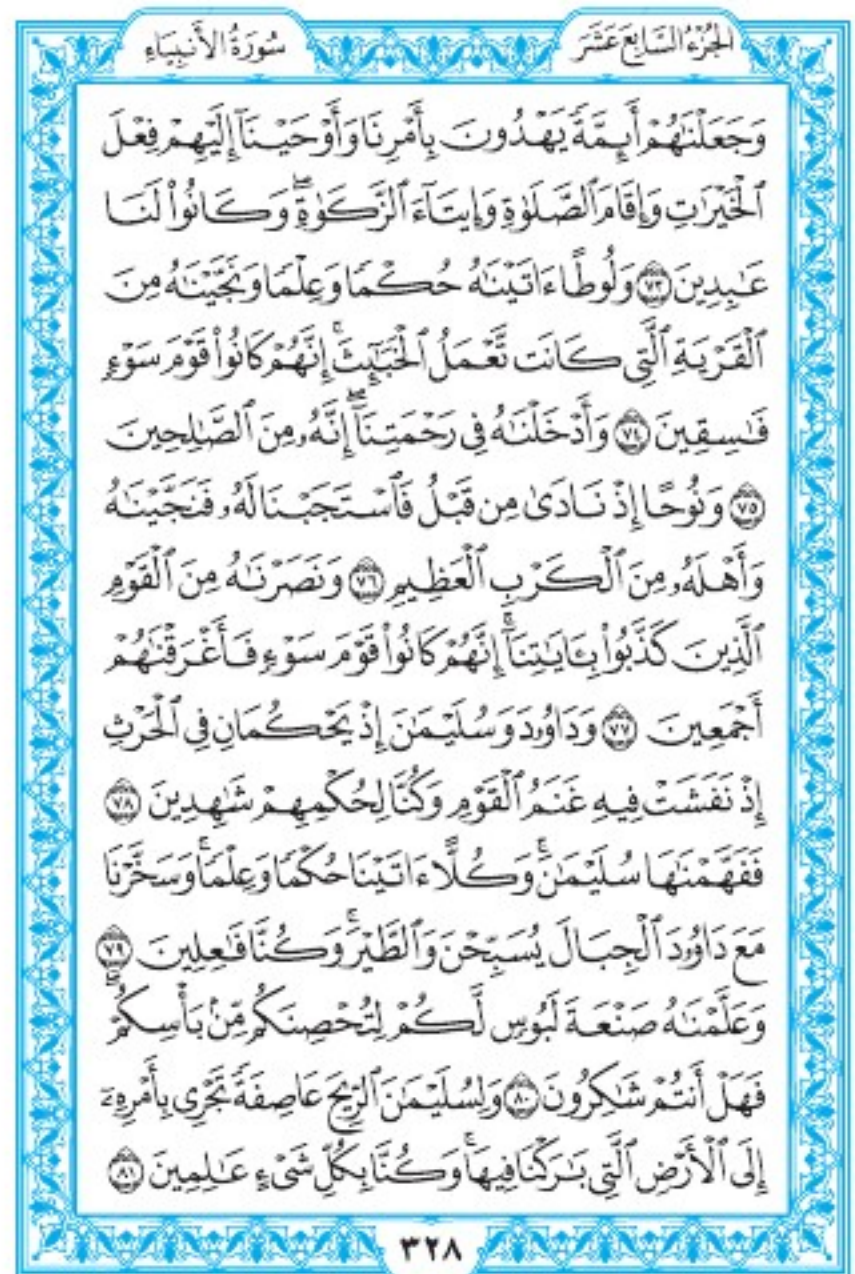 الجُزْءُ السَّابِعَ عَشَرَ
سُورَةُ الأَنبِيَاءِ
وَجَعَلْنَٰهُمْ أَئِمَّةً يَهْدُونَ بِأَمْرِنَا وَأَوْحَيْنَآ إِلَيْهِمْ فِعْلَ
ٱلْخَيْرَٰتِ وَإِقَامَ ٱلصَّلَوٰةِ وَإِيتَآءَ ٱلزَّكَوٰةِۖ وَكَانُوا۟ لَنَا
عَٰبِدِينَ ۝٧٣ وَلُوطًا ءَاتَيْنَٰهُ حُكْمًا وَعِلْمًا وَنَجَّيْنَٰهُ مِنَ
ٱلْقَرْيَةِ ٱلَّتِى كَانَت تَّعْمَلُ ٱلْخَبَٰٓئِثَۚ إِنَّهُمْ كَانُوا۟ قَوْمَ سَوْءٍ
فَٰسِقِينَ ۝٧٤ وَأَدْخَلْنَٰهُ فِى رَحْمَتِنَآۖ إِنَّهُۥ مِنَ ٱلصَّٰلِحِينَ
۝٧٥ وَنُوحًا إِذْ نَادَىٰ مِن قَبْلُ فَٱسْتَجَبْنَا لَهُۥ فَنَجَّيْنَٰهُ
وَأَهْلَهُۥ مِنَ ٱلْكَرْبِ ٱلْعَظِيمِ ۝٧٦ وَنَصَرْنَٰهُ مِنَ ٱلْقَوْمِ
ٱلَّذِينَ كَذَّبُوا۟ بِـَٔايَٰتِنَآۚ إِنَّهُمْ كَانُوا۟ قَوْمَ سَوْءٍ فَأَغْرَقْنَٰهُمْ
أَجْمَعِينَ ۝٧٧ وَدَاوُۥدَ وَسُلَيْمَٰنَ إِذْ يَحْكُمَانِ فِى ٱلْحَرْثِ
إِذْ نَفَشَتْ فِيهِ غَنَمُ ٱلْقَوْمِ وَكُنَّا لِحُكْمِهِمْ شَٰهِدِينَ ۝٧٨
فَفَهَّمْنَٰهَا سُلَيْمَٰنَۚ وَكُلًّا ءَاتَيْنَا حُكْمًا وَعِلْمًاۚ وَسَخَّرْنَا
مَعَ دَاوُۥدَ ٱلْجِبَالَ يُسَبِّحْنَ وَٱلطَّيْرَۚ وَكُنَّا فَٰعِلِينَ ۝٧٩
وَعَلَّمْنَٰهُ صَنْعَةَ لَبُوسٍ لَّكُمْ لِتُحْصِنَكُم مِّنۢ بَأْسِكُمْۖ
فَهَلْ أَنتُمْ شَٰكِرُونَ ۝٨٠ وَلِسُلَيْمَٰنَ ٱلرِّيحَ عَاصِفَةً تَجْرِى بِأَمْرِهِۦٓ
إِلَى ٱلْأَرْضِ ٱلَّتِى بَٰرَكْنَا فِيهَاۚ وَكُنَّا بِكُلِّ شَىْءٍ عَٰلِمِينَ ۝٨١
٣٢٨